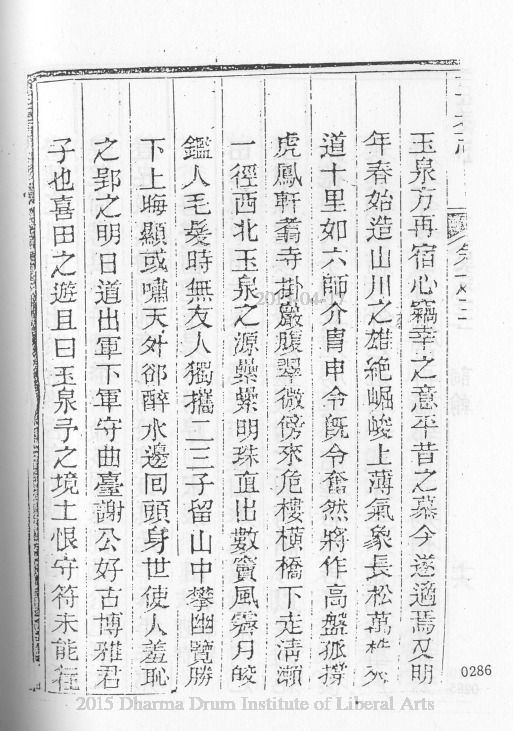 玉泉方再宿心竊幸之意平昔之慕今遂適焉又明
年春始造山川之雄絶崛峻上薄氣象長松萬株夾
道十里如六師介胄申令既令奮然將作高盤孤撐
虎鳳軒翥寺掛巖腹翠微傍來危樓橫橋下走清瀬
一徑西北玉泉之源纍纍明珠直出數竇風霽月皎
鑑人毛髮時無友人獨攜二三子留山中攀幽覽勝
下上晦顯或嘯天外卻醉水邊回頭身世使人羞恥
之郢之明日道出軍下軍守曲臺謝公好古博雅君
子也喜田之遊且曰玉泉予之境土恨守符未能往
0286
2015 Dharma Drum Institute of Liberal Arts